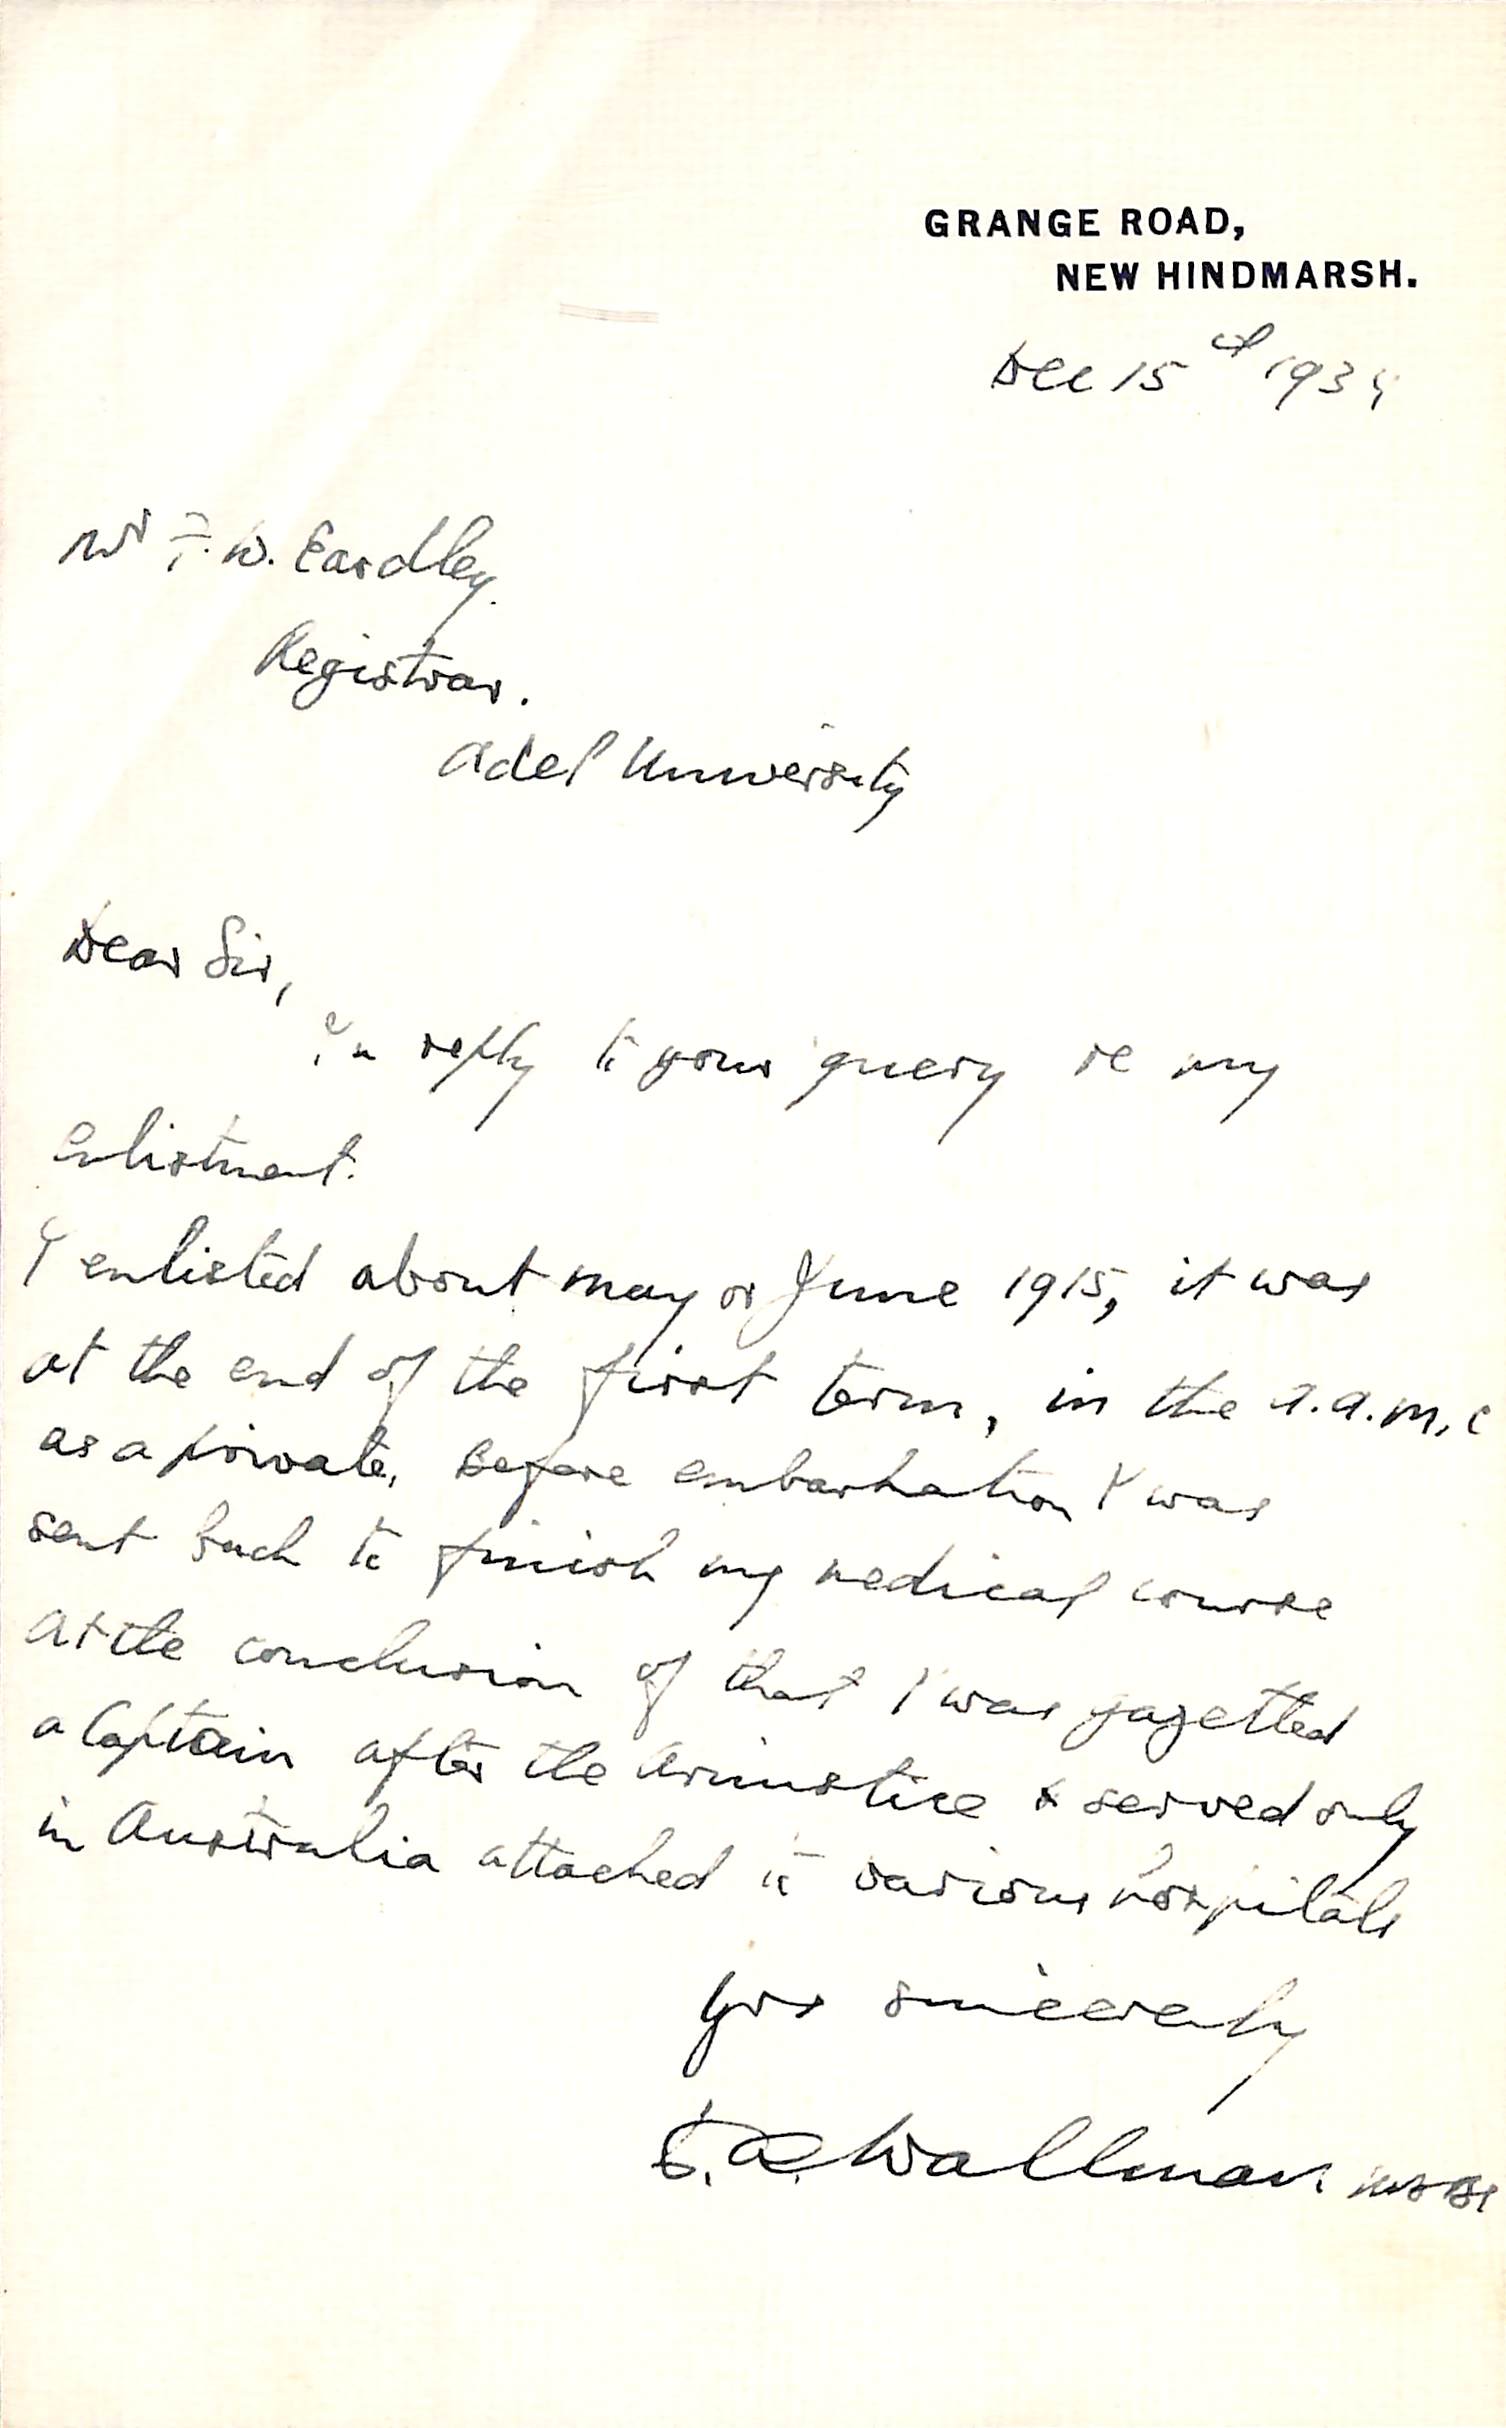 GRANGE ROAD,
NEW HINDMARSH.
Dec 15th 1934
Mr F. W. Eardley.
Registrar.
Adel University
Dear Sir,
In reply to your query re my
enlistment.
I enlisted about may or June 1915, it was
at the end of the first term, in the A.A.M.C
as a private, Before embarkation I was
sent back to finish my medical course
At the conclusion of that I was gazetted
a Captain after the Armistice & served only
in Australia attached to various hospitals
Yrs sincerely
Wallman. MBBS